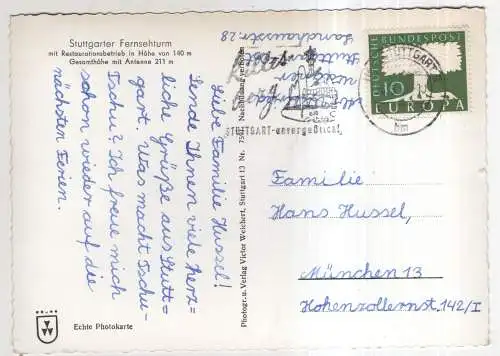 Stuttgarter Fernsehturm
mit Restaurationsbetrieb in Höhe von 140 m
Gesamthöhe mit Antenne 211 m
Liebe Familie Hussel!
Sende Ihnen viele herz=
liche Grüße aus Stutt=
gart. Was macht Tschu-
Tschu? Ich freue mich
schon wieder auf die
nächsten Ferien.
Echte Photokarte
Photogr. u. Verlag Victor Weichert, Stuttgart 13 Nr. Nachbildung verboten
Stuttgart
STUTTGART-unvergeßlich!
DEUTSCHE BUNDESPOST
10
EUROPA
STUTTGART
Familie
Hans Hussel,
München 13
Hohenzollernst 142/I